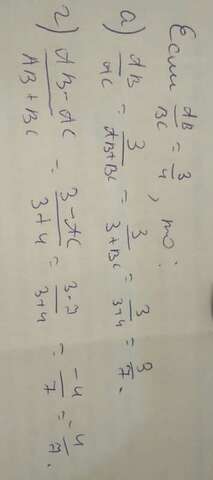 Если AB/BC = 3/4, то:
а) AB/AC = 3/AB+BC = 3/3+BC = 3/3+4 = 3/7.
г) AB-AC/AB+BC = 3-AC/3+4 = 3-7/3+4 = -4/7 = -4/7.